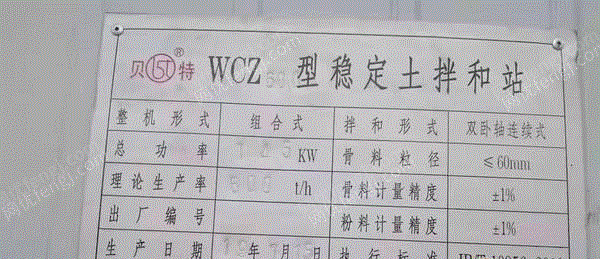 贝 ST 特 ® WCZ 型稳定土拌和站
整机形式 组合式 拌和形式 双卧轴连续式
总功率 KW 骨料粒径 ≤60mm
理论生产率 600 t/h 骨料计量精度 ±1%
出厂编号 粉料计量精度 ±1%
生产日期 年 月 执行标准